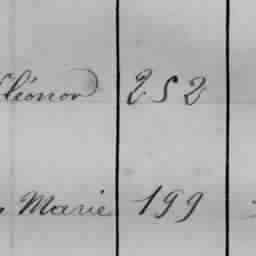 Eléonor 252
Marie 199